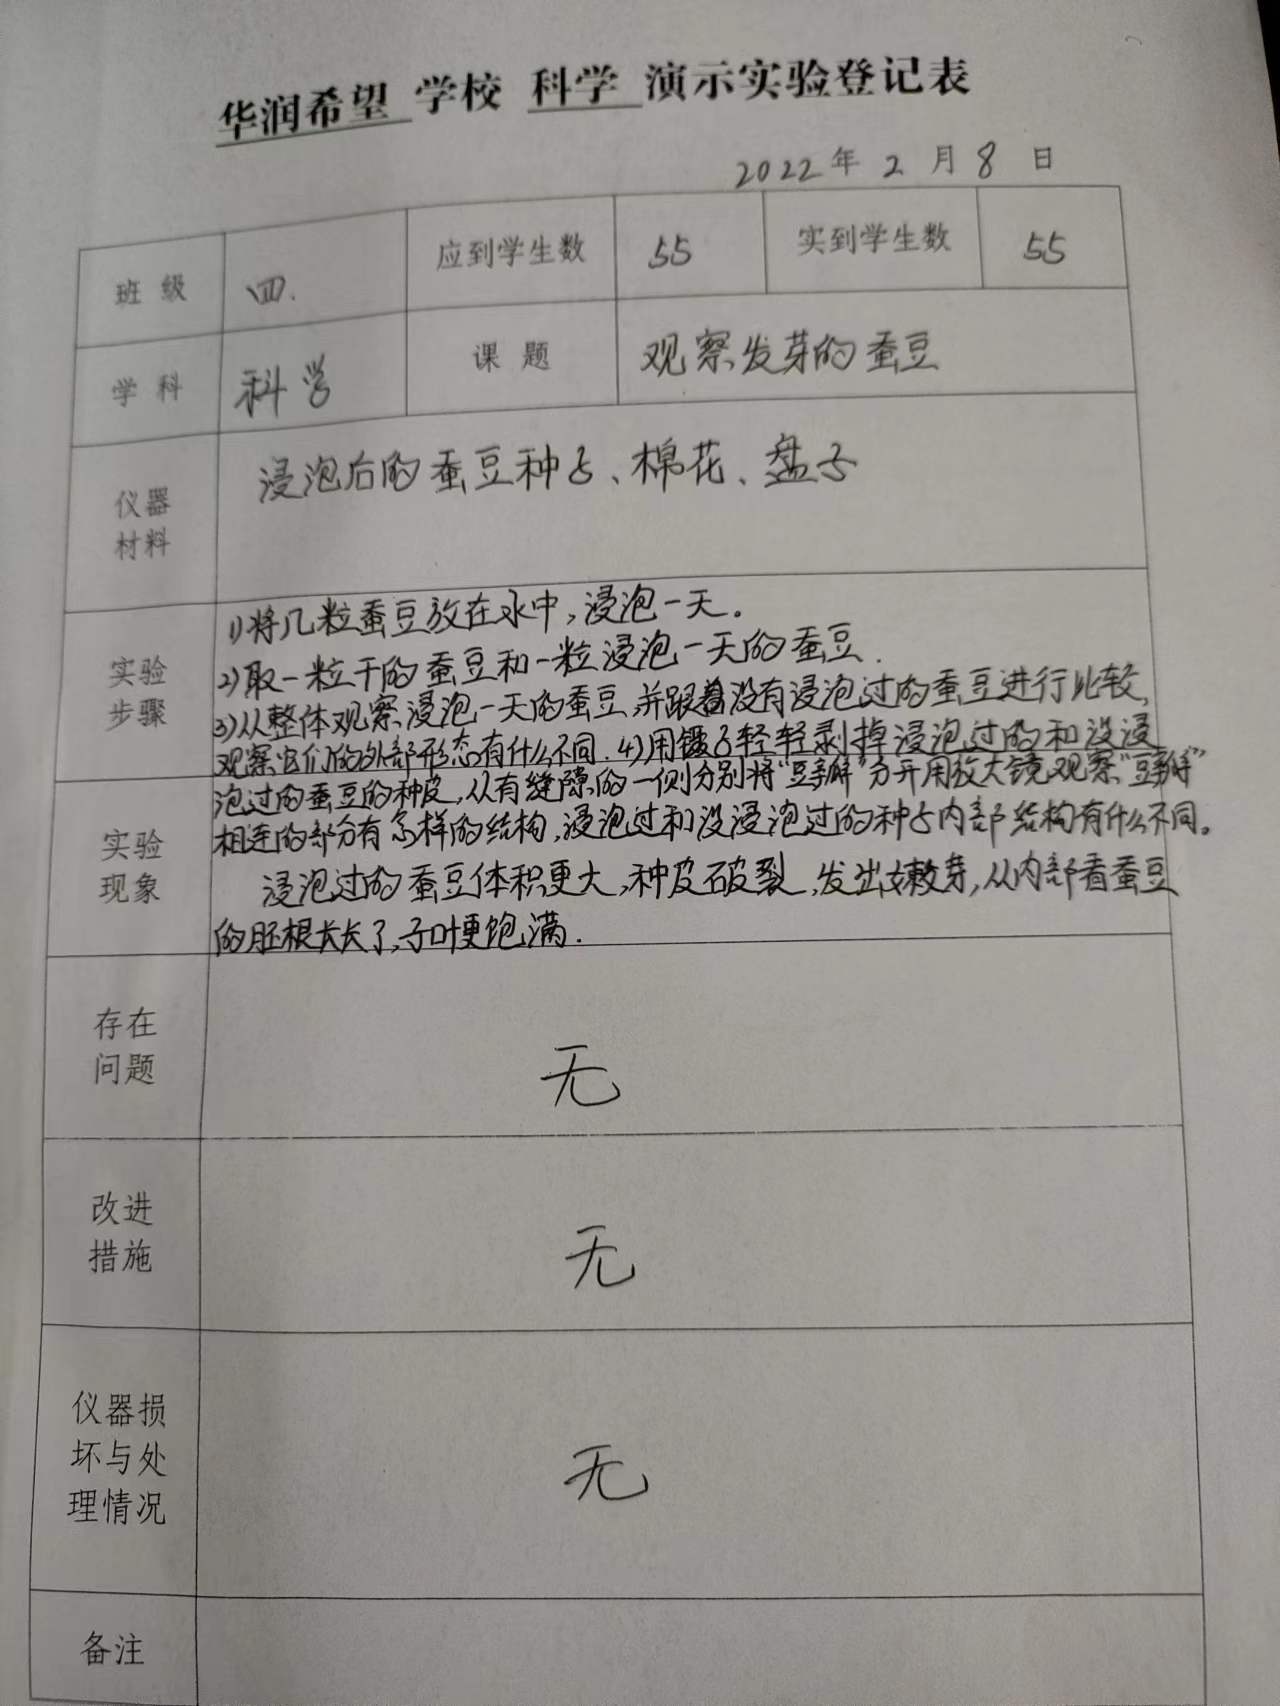 华润希望 学校 科学 演示实验登记表
2022年 2 月 8 日
班 级 四. 应到学生数 55 实到学生数 55
学 科 科学 课 题 观察发芽的蚕豆
仪器
材料
浸泡后的蚕豆种子、棉花、盘子
实验
步骤
1)将几粒蚕豆放在水中,浸泡一天.
2)取一粒干的蚕豆和一粒浸泡一天的蚕豆.
3)从整体观察浸泡一天的蚕豆,并跟着没有浸泡过的蚕豆进行比较,
观察它们的外部形态有什么不同.4)用镊子轻轻剥掉浸泡过的和没浸
泡过的蚕豆的种皮,从有缝隙的一侧分别将“豆瓣”分开用放大镜观察“豆瓣”
相连的部分有怎样的结构,浸泡过和没浸泡过的种子内部结构有什么不同。
实验
现象
浸泡过的蚕豆体积更大,种皮破裂,发出嫩芽,从内部看蚕豆
的胚根长长了,子叶更饱满.
存在
问题
无
改进
措施
无
仪器损
坏与处
理情况
无
备注